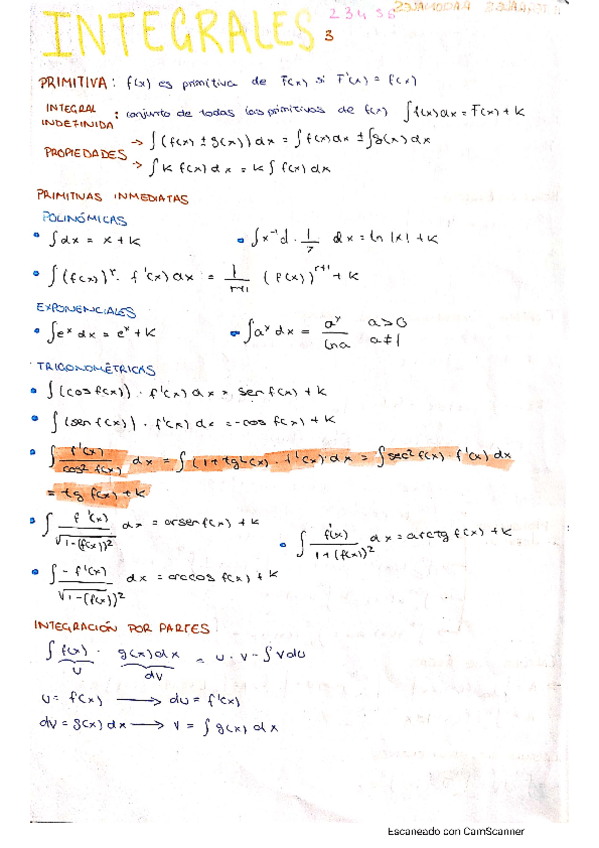 INTEGRALES 3
PRIMITIVA: f(x) es primitiva de F(x) si F'(x) = f(x)
INTEGRAL INDEFINIDA: conjunto de todas las primitivas de f(x) ∫f(x)dx = F(x) + K
PROPIEDADES → ∫(f(x) ± g(x)) dx = ∫f(x)dx ± ∫g(x)dx
→ ∫K f(x) dx = K∫ f(x) dx
PRIMITIVAS INMEDIATAS
POLINÓMICAS
• ∫dx = x + K
• ∫x⁻¹d · 1/7 dx = ln |x| + K
• ∫(f(x))ʳ · f'(x) dx = 1/(r+1) (f(x))ʳ⁺¹ + K
EXPONENCIALES
• ∫eˣ dx = eˣ + K
• ∫aˣ dx = aˣ/ln a a>0 a≠1
TRIGONOMÉTRICAS
• ∫(cos f(x)) · f'(x) dx = sen f(x) + K
• ∫(sen f(x)) · f'(x) dx = -cos f(x) + K
• ∫ f'(x)/cos² f(x) dx = ∫(1+tg²(x) · f'(x)·dx = ∫sec² f(x) · f'(x) dx
= tg f(x) + K
• ∫ f'(x)/√1-(f(x))² dx = arsen f(x) + K
• ∫ f'(x)/1+(f(x))² dx = arctg f(x) + K
• ∫ -f'(x)/√1-(f(x))² dx = arccos f(x) + K
INTEGRACIÓN POR PARTES
∫ f(x) · g(x)dx = u · v - ∫vdu
u dv
u = f(x) → du = f'(x)
dv = g(x) dx → v = ∫ g(x) dx
Escaneado con CamScanner